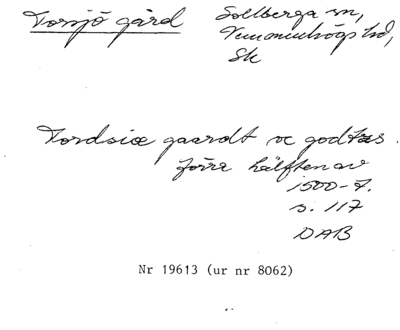 Torsjö gård
Solberga sn,
Vemmenhögs hd,
Sk
Tordsiæ gaardt oc godtzs.
förra hälften av
1500-t.
s. 117
DAB
Nr 19613 (ur nr 8062)